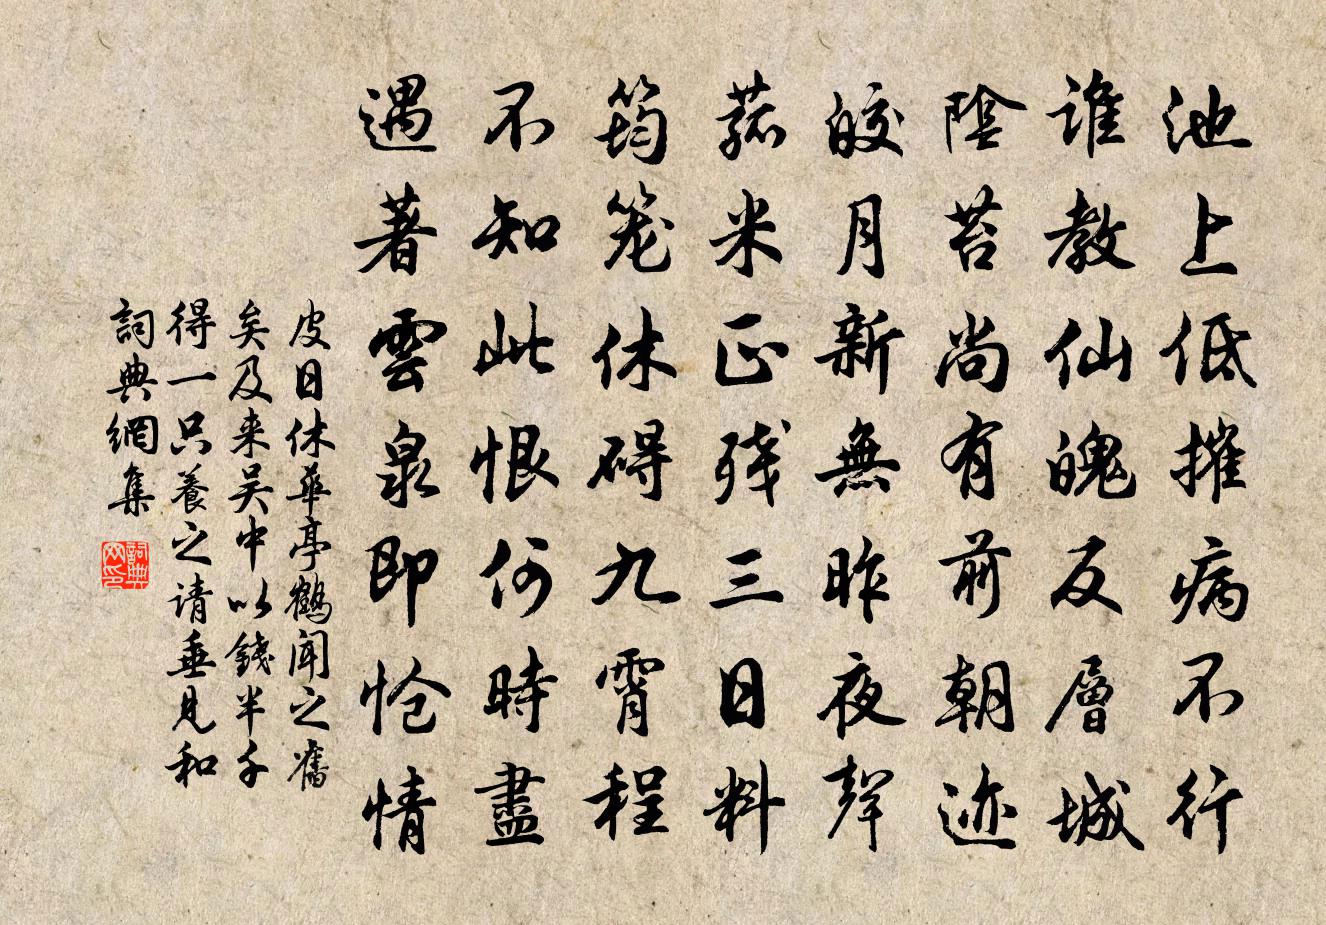 池上低摧病不行
谁教仙魄反層城
陰苔尚有前朝迹
皎月新無昨夜聲
菰米正残三日料
筠笼休碍九霄程
不知此恨何時盡
遇著雲泉即怆情
皮日休華亭鹤闻之舊
矣及来吴中以錢半千
得一只養之请垂見和
詞典網集
詞典网印